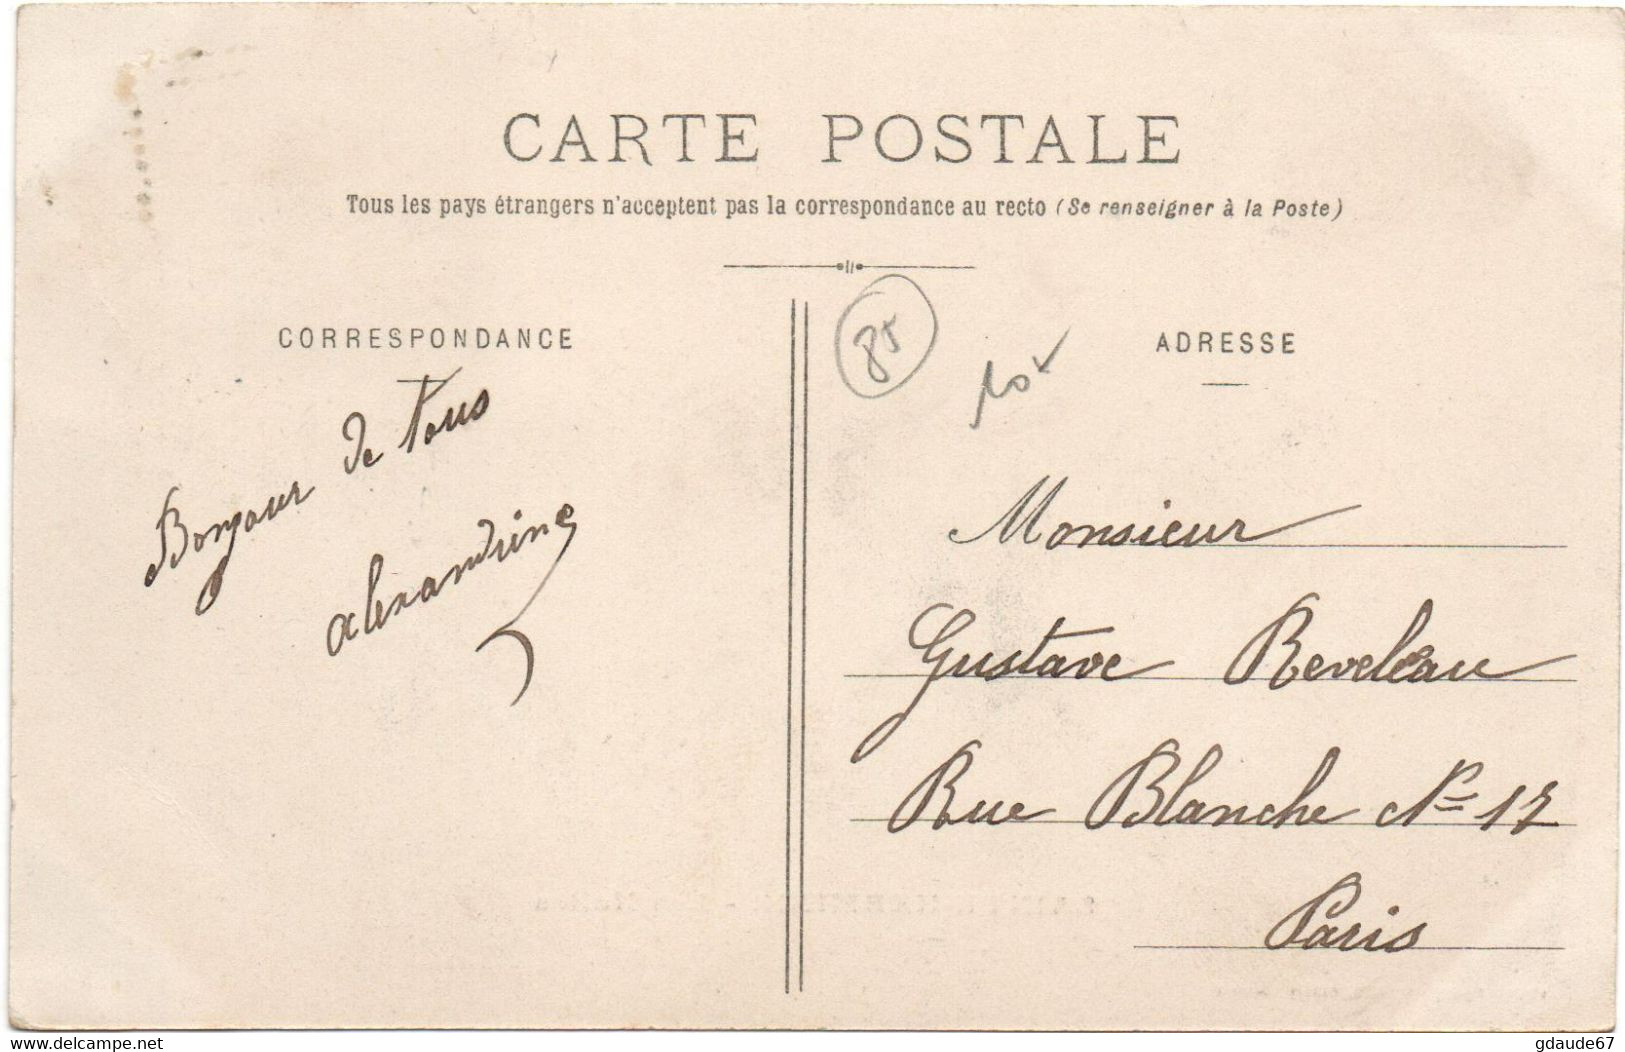 CARTE POSTALE
Tous les pays étrangers n'acceptent pas la correspondance au recto (Se renseigner à la Poste)
CORRESPONDANCE
Bonjour de tous
alexandrine
85
ADRESSE
Monsieur
Gustave Reveleau
Rue Blanche No 17
Paris
www.delcampe.net
gdaude67